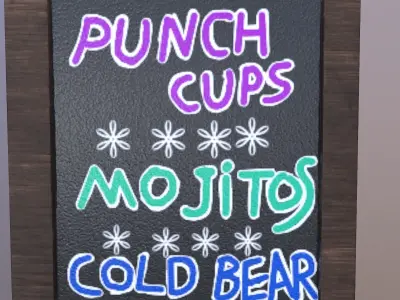 PUNCH
CUPS
MOJITOS
COLD BEAR